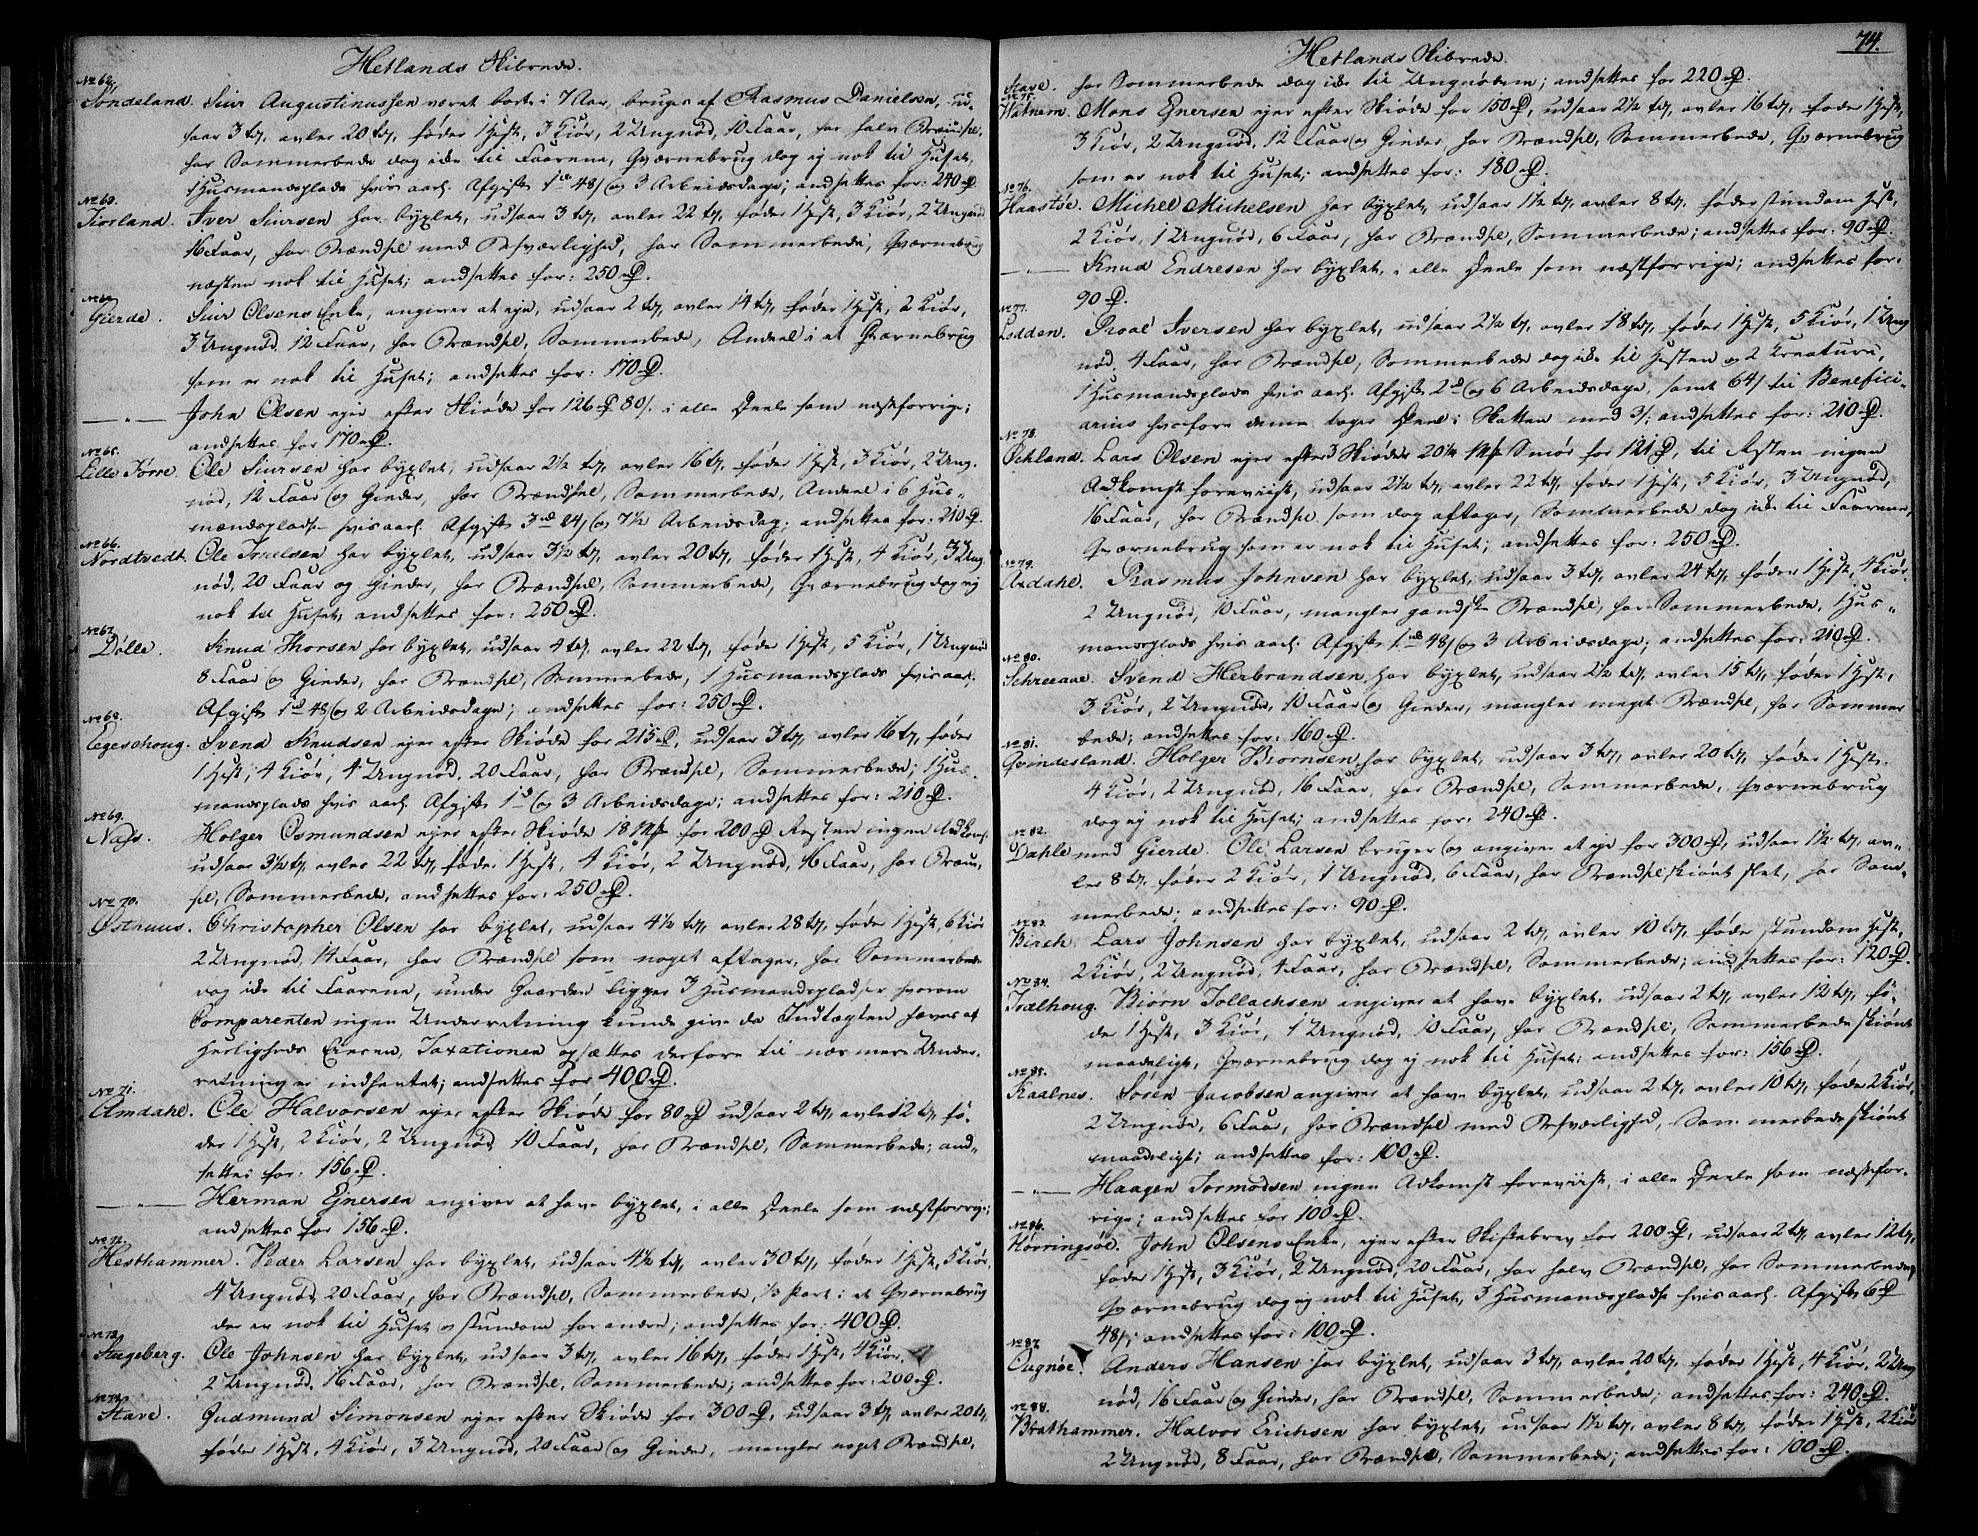 Hetlands Skibrede.
No 62.
Söndeland. Siur Augustinussen været borte i 7 Aar, bruges af Rasmus Danielsen, ud-
saar 3 td, avler 20 td, föder 1 Hest, 3 Kiör, 2 Ungnöd, 10 Faar, har halv Brændsel,
har Sommerbede dog ikke til Faarene, Qværnebrug dog ej nok til Huset,
1 Husmandsplads hvis aarl. Afgift 1 rd 48 s og 3 Arbeidsdage; ansettes for: 240 rd.
No 63.
Tiorland. Sver Siursen har byxlet, udsaar 3 td, avler 22 td, föder 1 Hest, 3 Kiör, 2 Ungnöd
16 Faar, har Brændsel med Besværlighed, har Sommerbede, Qværnebrug
næsten nok til Huset; andsettes for: 250 rd.
No 64.
Gierde. Siur Olsens Enke, angiver at eje, udsaar 2 td, avler 14 td, föder 1 Hest, 2 Kiör,
3 Ungnöd, 12 Faar, har Brændsel, Sommerbede, Andeel i et Qværnebrug
som er nok til Huset; andsettes for: 170 rd.
— " — John Olsen ejer efter Skiöde for 126 rd 80 s. i alle Deele som næstforrige;
andsettes for 170 rd.
No 65.
Lille Törre. Ole Siursen har byxlet, udsaar 2 1/2 td, avler 16 td, föder 1 Hest, 3 Kiör, 2 Ung-
nöd, 12 Faar og Gieder, har Brændsel, Sommerbede, Andeel i 6 Hus-
mandspladse hvis aarl. Afgift 3 rd 24 s og 7 1/2 Arbeidsdag; andsettes for: 210 rd.
No 66.
Nordtvedt. Ole Ivrelsen har byxlet, udsaar 3 1/2 td, avler 20 td, föder 1 Hest, 4 Kiör, 3 Ung-
nöd, 20 Faar og Gieder, har Brændsel, Sommerbede, Qværnebrug dog ej
nok til Huset, andsettes for: 250 rd.
No 67.
Dölle. Knud Thorsen har byxlet, udsaar 4 td, avler 22 td, föder 1 Hest, 5 Kiör, 1 Ungnöd
8 Faar og Gieder, har Brændsel, Sommerbede, 1 Husmandsplads hvis aarl.
Afgift 1 rd 48 s og 2 Arbeidsdage; andsettes for: 250 rd.
No 68.
Eegeschoug. Svend Knudsen ejer efter Skiöde for 215 rd, udsaar 3 td, avler 16 td, föder
1 Hest, 4 Kiör, 4 Ungnöd, 20 Faar, har Brændsel, Sommerbede, 1 Hus-
mandsplads hvis aarl. Afgift 1 rd og 3 Arbeidsdage; andsettes for: 210 rd.
No 69.
Næss. Holger Osmundsen ejer efter Skiöde 18 Mrk for 200 rd Resten ingen Adkomst
udsaar 3 1/2 td, avler 22 td, föder 1 Hest, 4 Kiör, 2 Ungnöd, 16 Faar, har Brænd-
sel, Sommerbede, andsettes for: 250 rd.
No 70.
Østnuus. Christopher Olsen har byxlet, udsaar 4 1/2 td, avler 28 td, föder 1 Hest, 6 Kiör
2 Ungnöd, 14 Faar, har Brændsel som noget aftager, har Sommerbede
dog ikke til Faarene, under Gaarden ligger 3 Husmandspladser hvorom
Comparenten ingen Underretning kunde give da Indtægten hæves af
Herligheds Eieren, Taxationen opsættes derfore til nærmere Under-
retning er indhentet; andsettes for 400 rd.
No 71.
Amdahl. Ole Halvorsen ejer efter Skiöde for 80 rd udsaar 2 td, avler 12 td, fö-
der 1 Hest, 2 Kiör, 2 Ungnöd, 10 Faar, har Brændsel, Sommerbede; and-
settes for: 156 rd.
— " — Herman Ejnersen angiver at have byxlet, i alle Deele som næstforrige;
andsettes for 156 rd.
No 72.
Hesthammer. Peder Larsen har byxlet, udsaar 4 1/2 td, avler 30 td, föder 1 Hest, 5 Kiör,
4 Ungnöd, 20 Faar, har Brændsel, Sommerbede, 1/3 Part i et Qværnebrug
der er nok til Huset og stundom for andre; andsettes for: 400 rd.
No 73.
Stageberg. Ole Johnsen har byxlet, udsaar 3 td, avler 16 td, föder 1 Hest, 4 Kiör,
2 Ungnöd, 16 Faar, har Brændsel, Sommerbede; andsettes for: 200 rd.
No 74.
Stave. Gudmund Simonsen ejer efter Skiöde for 300 rd, udsaar 3 td, avler 20 td,
föder 1 Hest, 4 Kiör, 3 Ungnöd, 20 Faar og Gieder, mangler noget Brændsel,
Hetlands Skibrede.
74.
Stave. har Sommerbede dog ikke til Ungnödene; andsettes for 220 rd.
No 75.
Watnem. Mons Ejnersen ejer efter Skiöde for 150 rd, udsaar 2 1/2 td, avler 16 td, föder 1 Hest,
3 Kiör, 2 Ungnöd, 12 Faar og Gieder, har Brændsel, Sommerbede, Qværnebrug
som er nok til Huset; andsettes for: 180 rd.
No 76.
Haastöe. Michel Michelsen har byxlet, udsaar 1 1/2 td, avler 8 td, föder stundom Hest,
2 Kiör, 1 Ungnöd, 6 Faar, har Brændsel, Sommerbede; andsettes for: 90 rd.
— " — Knud Endresen har byxlet, i alle Deele som næstforrige; andsettes for:
90 rd.
No 77.
Lodden. Roal Iversen har byxlet, udsaar 2 1/2 td, avler 18 td, föder 1 Hest, 5 Kiör, 1 Ung-
nöd, 4 Faar, har Brændsel, Sommerbede dog ikke til Hesten og 2 Creature,
1 Husmandsplads hvis aarl. Afgift 2 rd og 6 Arbeidsdage, samt 64 s til Benefici-
arius hvorfore denne tager Deel i Skatten med 3 s; andsettes for: 210 rd.
No 78.
Öchland. Lars Olsen ejer efter 3 Skiöder 20 1/4 Mrk Smör for 121 rd, til Resten ingen
Adkomst foreviist, udsaar 2 1/2 td, avler 22 td, föder 1 Hest, 5 Kiör, 3 Ungnöd,
16 Faar, har Brændsel som dog aftager, Sommerbede dog ikke til Faarene,
Qværnebrug som er nok til Huset; andsettes for: 250 rd.
No 79.
Axdahl. Rasmus Johnsen har byxlet, udsaar 3 td, avler 24 td, föder 1 Hest, 4 Kiör,
2 Ungnöd, 10 Faar, mangler gandske Brændsel, har Sommerbede, 1 Hus-
mandsplads hvis aarl. Afgift 1 rd 48 s og 3 Arbeidsdage; andsettes for: 210 rd.
No 80.
Schreeaue. Svend Herbrandsen har byxlet, udsaar 2 1/2 td, avler 15 td, föder 1 Hest,
3 Kiör, 2 Ungnöd, 10 Faar og Gieder, mangler meget Brændsel, har Sommer
bede; andsettes for: 160 rd.
No 81.
Qvindesland. Holger Biornsen har byxlet, udsaar 3 td, avler 20 td, föder 1 Hest,
4 Kiör, 2 Ungnöd, 16 Faar, har Brændsel, Sommerbede, Qværnebrug
dog ej nok til Huset; andsettes for: 240 rd.
No 82.
Dahle med Gierde. Ole Larsen bruger og angiver at eje for 300 rd, udsaar 1 1/2 td, av-
ler 8 td, föder 2 Kiör, 1 Ungnöd, 6 Faar, har Brændsel skiönt slet, har Som-
merbede; andsettes for: 90 rd.
No 83.
Birch. Lars Johnsen har byxlet, udsaar 2 td, avler 10 td, föder stundom Hest,
2 Kiör, 2 Ungnöd, 4 Faar, har Brændsel, Sommerbede; andsettes for: 120 rd.
No 84.
Tvælhoug. Biörn Tollachsen angiver at have byxlet, udsaar 2 td, avler 12 td, fö-
der 1 Hest, 3 Kiör, 1 Ungnöd, 10 Faar, har Brændsel, Sommerbede skiönt
maadeligt, Qværnebrug dog ej nok til Huset; andsettes for: 156 rd.
No 85.
Kaalnes. Sören Jacobsen angiver at have byxlet, udsaar 2 td, avler 10 td, föder 2 Kiör,
2 Ungnöd, 6 Faar, har Brændsel med Besværlighed, Sommerbede skiönt
maadeligt; andsettes for: 100 rd.
— " — Haagen Tormodsen ingen Adkomst foreviist, i alle Deele som næstfor-
rige; andsettes for 100 rd.
No 86.
Hövringsöe. John Olsens Enke, ejer efter Skiftebrev for 200 rd, udsaar 2 td, avler 12 td,
föder 1 Hest, 3 Kiör, 2 Ungnöd, 20 Faar, har halv Brændsel, har Sommerbede,
Qværnebrug dog ej nok til Huset, 3 Husmandspladse hvis aarl. Afgift 6 rd
48 s; andsettes for: 100 rd.
No 87.
Ougnöe. Anders Hansen har byxlet, udsaar 3 td, avler 20 td, föder 1 Hest, 4 Kiör, 2 Ung
nöd, 16 Faar og Gieder, har Brændsel, Sommerbede; andsettes for: 240 rd.
No 88.
Brathammer. Halvor Erichsen har byxlet, udsaar 1 1/2 td, avler 8 td, föder 1 Hest, 2 Kiör
2 Ungnöd, 8 Faar, har Brændsel, Sommerbede; andsettes for: 100 rd.